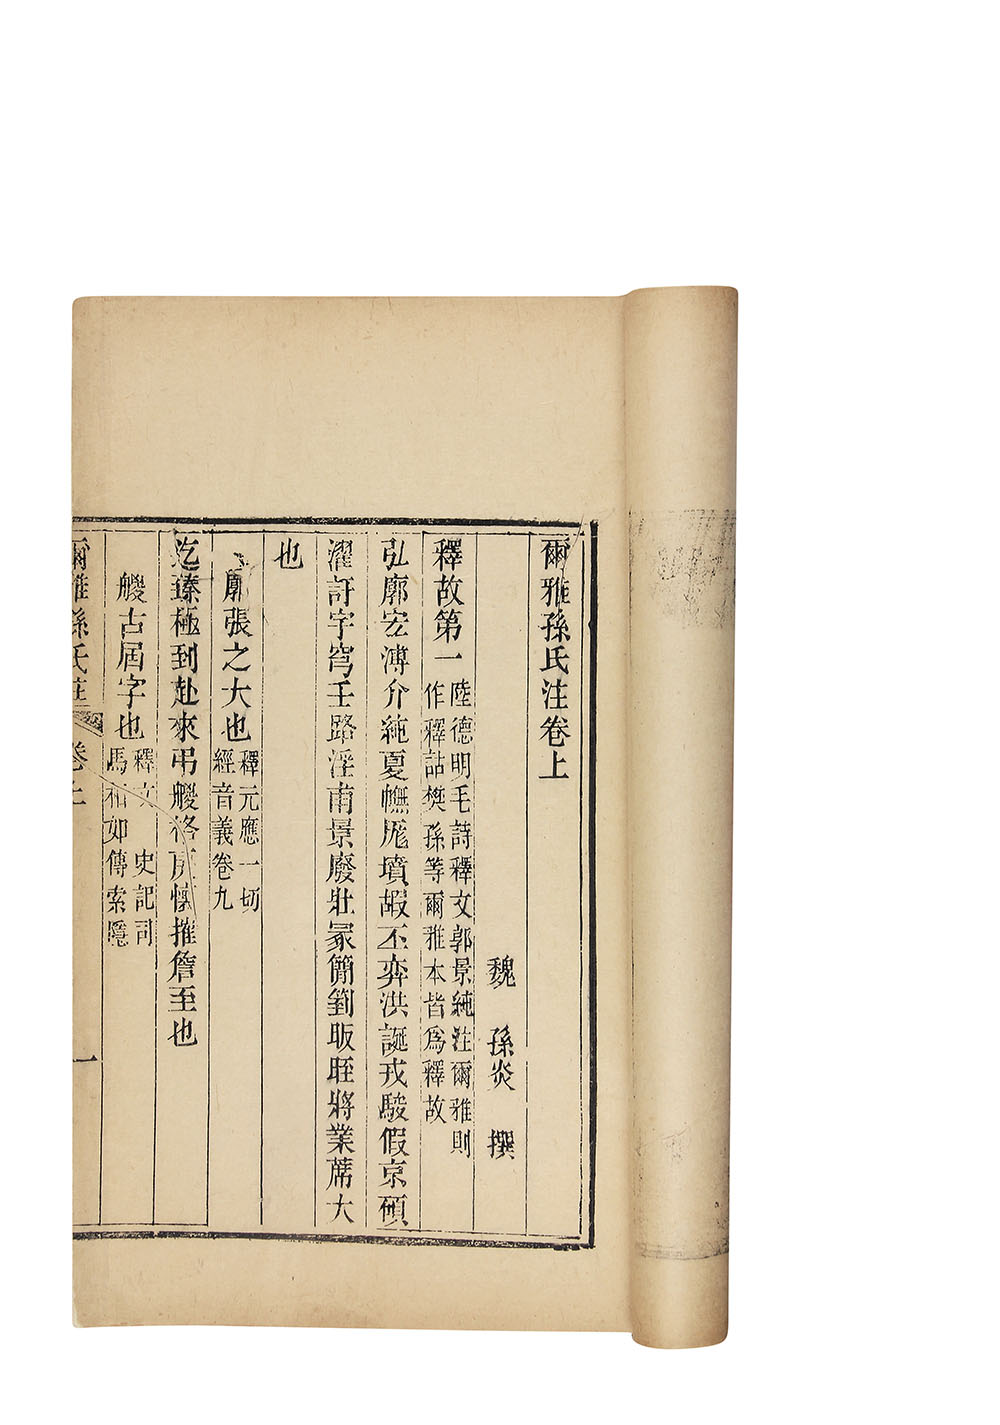 爾雅孫氏注卷上
魏 孫炎 撰
釋故第一 陸德明毛詩釋文郭景純注爾雅則
作釋詁樊孫等爾雅本皆爲釋故
弘廓宏溥介純夏幠厖墳嘏丕弈洪誕戎駿假京碩
濯訏宇穹壬路淫甫景廢壯冢簡箌昄晊將業蓆大
也
廓張之大也 釋元應一切
經音義卷九
迄臻極到赴來弔艐格戾懷摧詹至也
艐古屆字也 釋文 史記司
馬相如傳索隱
爾雅孫氏注 卷上 一